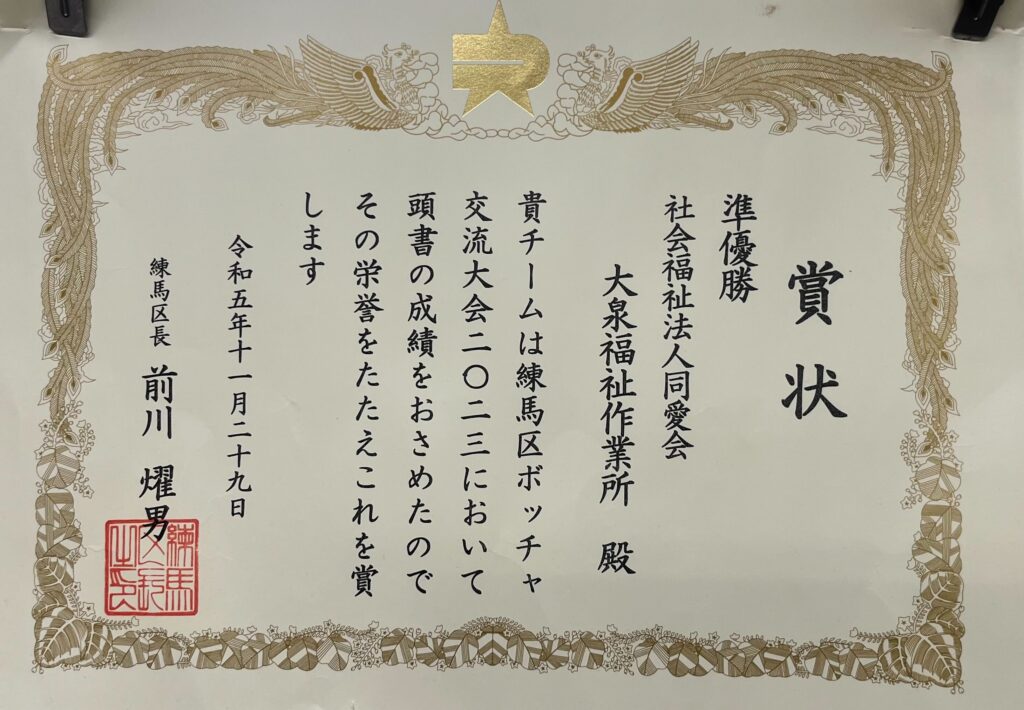 賞状
準優勝
社会福祉法人同愛会
大泉福祉作業所 殿
貴チームは練馬区ボッチャ
交流大会二〇二三において
頭書の成績をおさめたので
その栄誉をたたえこれを賞
します
令和五年十一月二十九日
練馬区長 前川 燿男
練馬
区長
之印